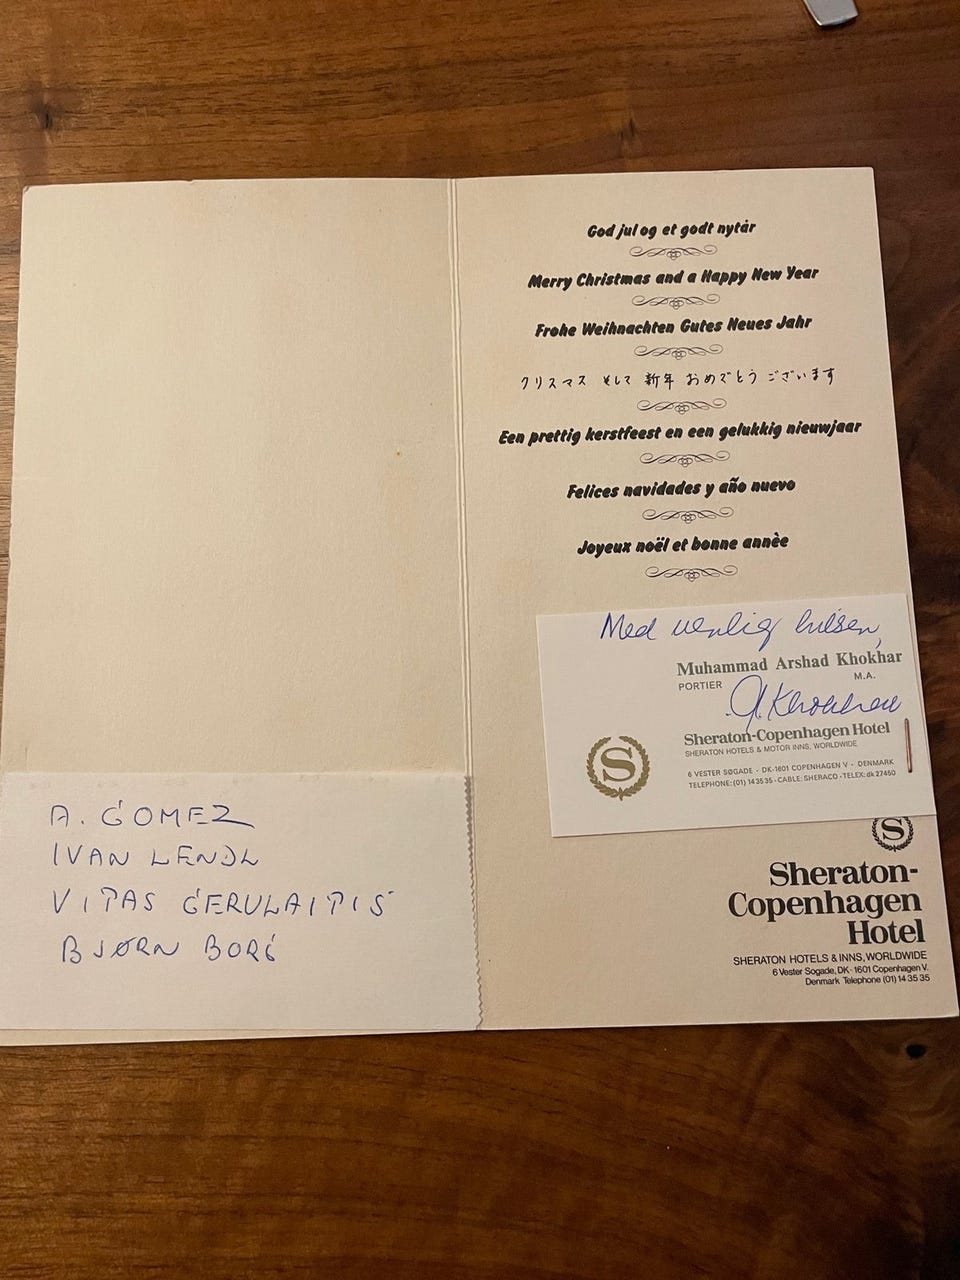 God jul og et godt nytår
Merry Christmas and a Happy New Year
Frohe Weihnachten Gutes Neues Jahr
クリスマス そして 新年 おめでとう ございます
Een prettig kerstfeest en een gelukkig nieuwjaar
Felices navidades y año nuevo
Joyeux noël et bonne annèe
Med venlig hilsen,
Muhammad Arshad Khokhar
M.A.
PORTIER
A. Khokhar
Sheraton-Copenhagen Hotel
SHERATON HOTELS & MOTOR INNS, WORLDWIDE
6 VESTER SØGADE - DK-1601 COPENHAGEN V - DENMARK
TELEPHONE: (01) 14 35 35 - CABLE: SHERACO - TELEX: dk 27450
S
S
Sheraton-
Copenhagen
Hotel
SHERATON HOTELS & INNS, WORLDWIDE
6 Vester Sogade, DK-1601 Copenhagen V.
Denmark Telephone (01) 14 35 35
A. GOMEZ
IVAN LENDL
VITAS GERULAITIS
BJØRN BORG